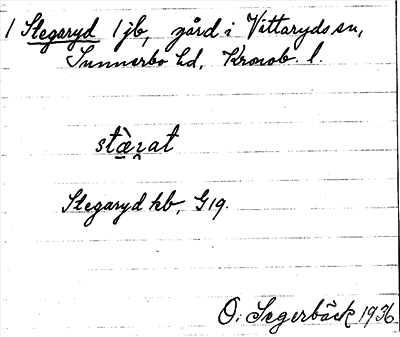 1 Stegaryd 1 jb, gård i Vittaryds sn,
Sunnerbo hd, Kronob. l.
stæ̀rat
Stegaryd kb, G 19.
O. Segerbäck 1936